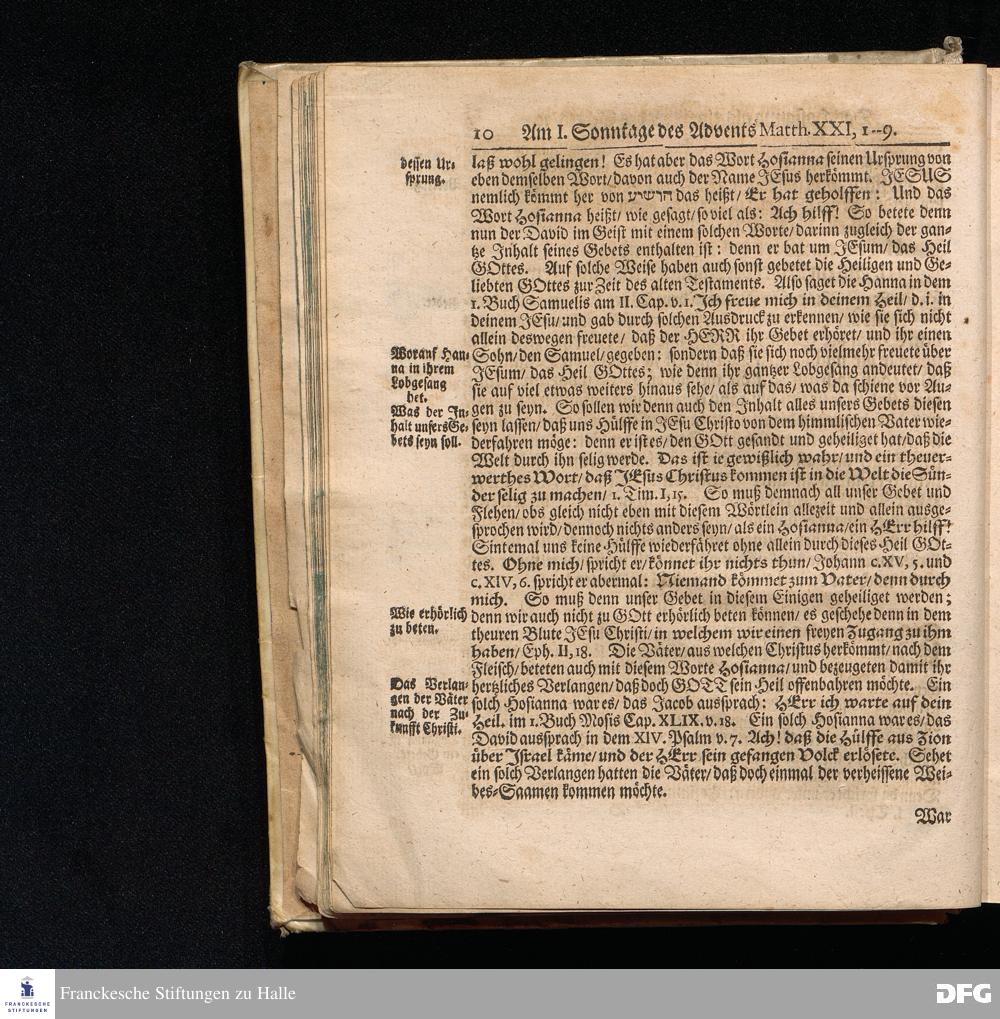 10 Am I. Sonntage des Advents Matth. XXI, 1--9.
dessen Ur-
sprung.
laß wohl gelingen! Es hat aber das Wort Hosianna seinen Ursprung von
eben demselben Wort/ davon auch der Name JEsus herkömmt. JESUS
nemlich kömmt her von הושיע das heißt/ Er hat geholffen: Und das
Wort Hosianna heißt/ wie gesagt/ so viel als: Ach hilff! So betete denn
nun der David im Geist mit einem solchen Worte/ darinn zugleich der gan-
tze Inhalt seines Gebets enthalten ist: denn er bat um JEsum/ das Heil
GOttes. Auf solche Weise haben auch sonst gebetet die Heiligen und Ge-
liebten GOttes zur Zeit des alten Testaments. Also saget die Hanna in dem
1. Buch Samuelis am II. Cap. v. 1. Ich freue mich in deinem Heil/ d. i. in
deinem JEsu/ und gab durch solchen Ausdruck zu erkennen/ wie sie sich nicht
allein deswegen freuete/ daß der HERR ihr Gebet erhöret/ und ihr einen
Worauf Han-
na in ihrem
Lobgesang
bet.
Sohn/ den Samuel/ gegeben: sondern daß sie sich noch vielmehr freuete über
JEsum/ das Heil GOttes; wie denn ihr gantzer Lobgesang andeutet/ daß
sie auf viel etwas weiters hinaus sehe/ als auf das/ was da schiene vor Au-
Was der In-
halt unsers Ge-
bets seyn soll.
gen zu seyn. So sollen wir denn auch den Inhalt alles unsers Gebets diesen
seyn lassen/ daß uns Hülffe in JEsu Christo von dem himmlischen Vater wie-
derfahren möge: denn er ist es/ den GOtt gesandt und geheiliget hat/ daß die
Welt durch ihn selig werde. Das ist ie gewißlich wahr/ und ein theuer-
werthes Wort/ daß JEsus Christus kommen ist in die Welt die Sün-
der selig zu machen/ 1. Tim. I, 15. So muß demnach all unser Gebet und
Flehen/ obs gleich nicht eben mit diesem Wörtlein allezeit und allein ausge-
sprochen wird/ dennoch nichts anders seyn/ als ein Hosianna/ ein HErr hilff!
Sintemal uns keine Hülffe wiederfähret ohne allein durch dieses Heil GOt-
tes. Ohne mich/ spricht er/ könnet ihr nichts thun/ Johann c. XV, 5. und
c. XIV, 6. spricht er abermal: Niemand kömmet zum Vater/ denn durch
mich. So muß denn unser Gebet in diesem Einigen geheiliget werden;
Wie erhörlich
zu beten.
denn wir auch nicht zu GOtt erhörlich beten können/ es geschehe denn in dem
theuren Blute JEsu Christi/ in welchem wir einen freyen Zugang zu ihm
haben/ Eph. II, 18. Die Väter/ aus welchen Christus herkömmt/ nach dem
Fleisch/ beteten auch mit diesem Worte Hosianna/ und bezeugeten damit ihr
Das Verlan-
gen der Väter
nach der Zu-
kunfft Christi.
hertzliches Verlangen/ daß doch GOTT sein Heil offenbahren möchte. Ein
solch Hosianna war es/ das Jacob aussprach: HErr ich warte auf dein
Heil. im 1. Buch Mosis Cap. XLIX. v. 18. Ein solch Hosianna war es/ das
David aussprach in dem XIV. Psalm v. 7. Ach! daß die Hülffe aus Zion
über Israel käme/ und der HErr sein gefangen Volck erlösete. Sehet
ein solch Verlangen hatten die Väter/ daß doch einmal der verheissene Wei-
bes-Saamen kommen möchte.
War
FRANCKESCHE
STIFTUNGEN
Franckesche Stiftungen zu Halle
DFG